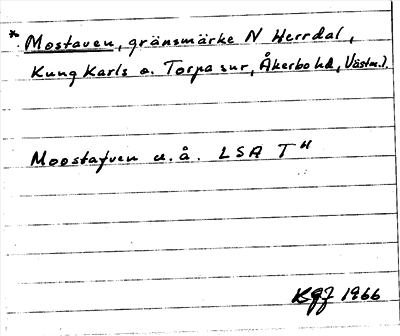 * Mostaven, gränsmärke N Herrdal,
Kung Karls o. Torpa snr, Åkerbo hd, Västm.l.
Moostafven u.å. LSA T"
KgJ 1966